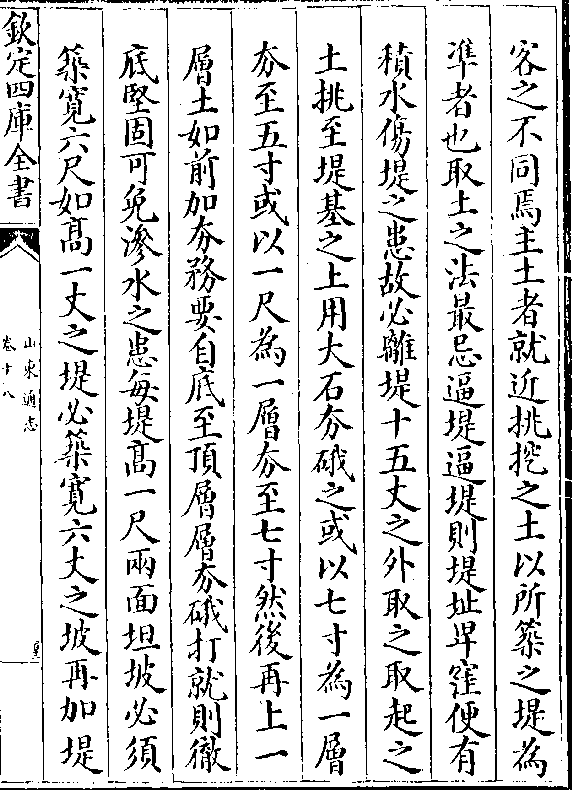 客之不同焉主土者就近挑挖之土以所築之堤為
準者也取土之法最忌逼堤逼堤則堤址卑窪便有
積水傷堤之患故必離堤十五丈之外取之取起之
土挑至堤基之上用大石夯硪之或以七寸為一層
夯至五寸或以一尺為一層夯至七寸然後再上一
層土如前加夯務要自底至頂層層夯硪打就則徹
底堅固可免滲水之患每堤高一尺兩面坦坡必須
築寬六尺如髙一丈之堤必築寬六丈之坡再加堤
欽定四庫全書
山東通志
卷十八